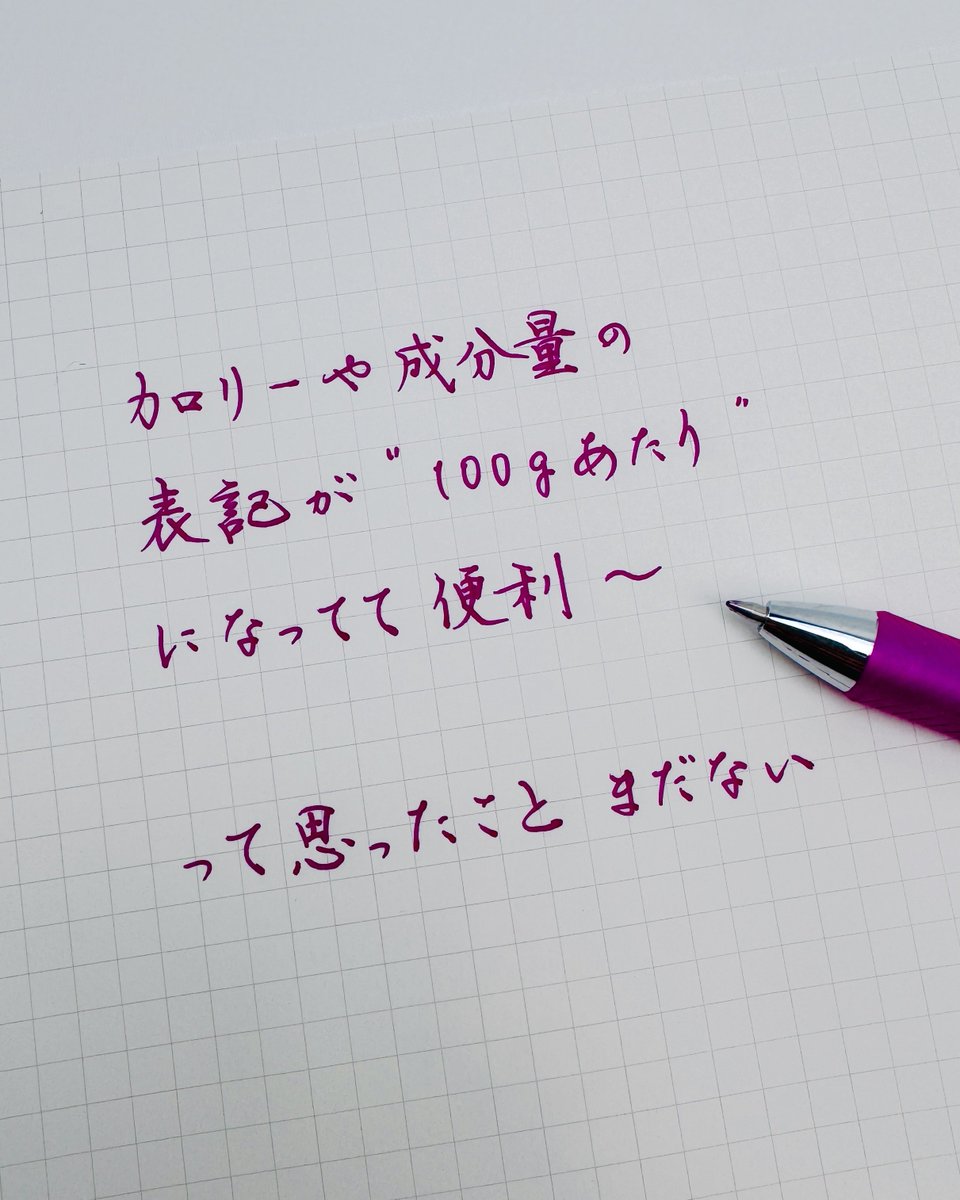 カロリーや成分量の
表記が"100gあたり"
になってて便利〜
って思ったこと まだない